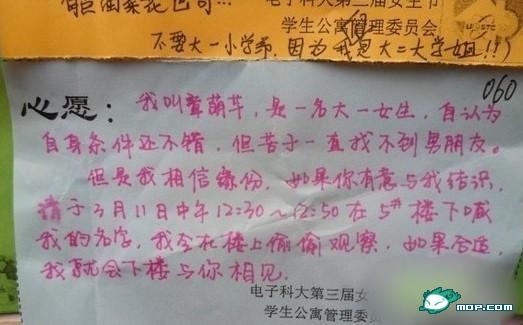 电子科大第三届女生节
学生公寓管理委员会
不要大一小学弟,因为我是大二大学姐!!)
060
心愿:我叫章萌芊,是一名大一女生,自认为
自身条件还不错,但苦于一直找不到男朋友。
但是我相信缘份,如果你有意与我结识,
请于3月11日中午12:30~12:50在5#楼下喊
我的名字,我会在楼上偷偷观察,如果合适,
我就会下楼与你相见.
电子科大第三届女
学生公寓管理委员
MOP.COM